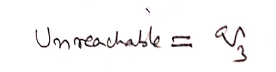 Unreachable = q3